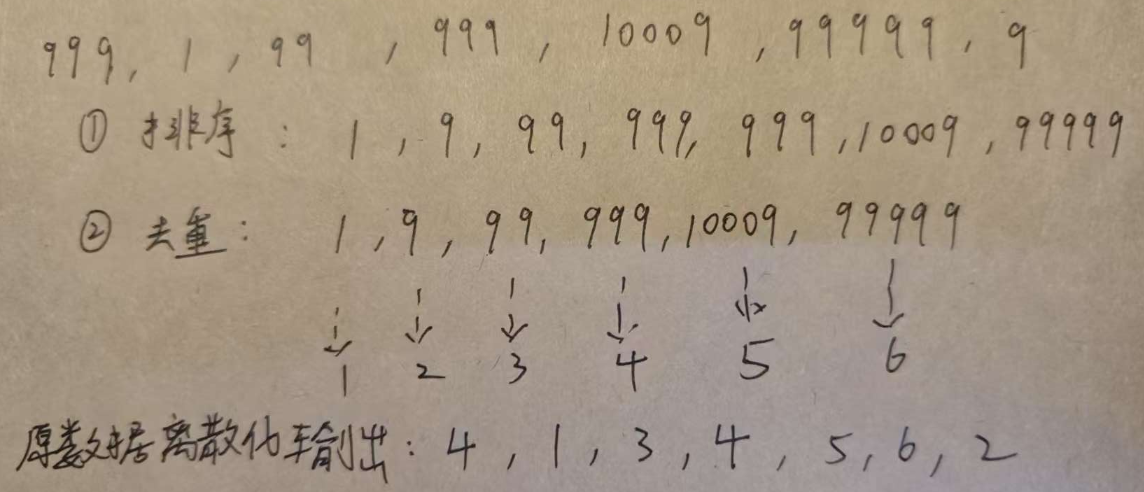 999, 1, 99, 999, 10009, 99999, 9
① 排序: 1, 9, 99, 999, 999, 10009, 99999
② 去重: 1, 9, 99, 999, 10009, 99999
1 2 3 4 5 6
原数据离散化输出: 4, 1, 3, 4, 5, 6, 2